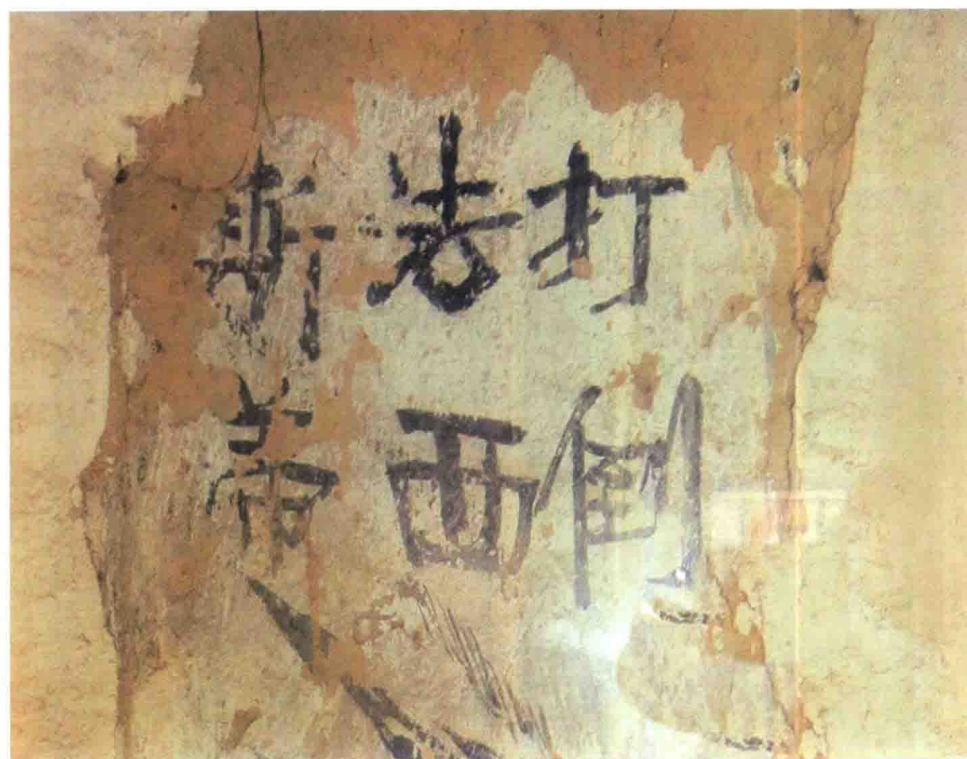 打倒
法西
斯蒂